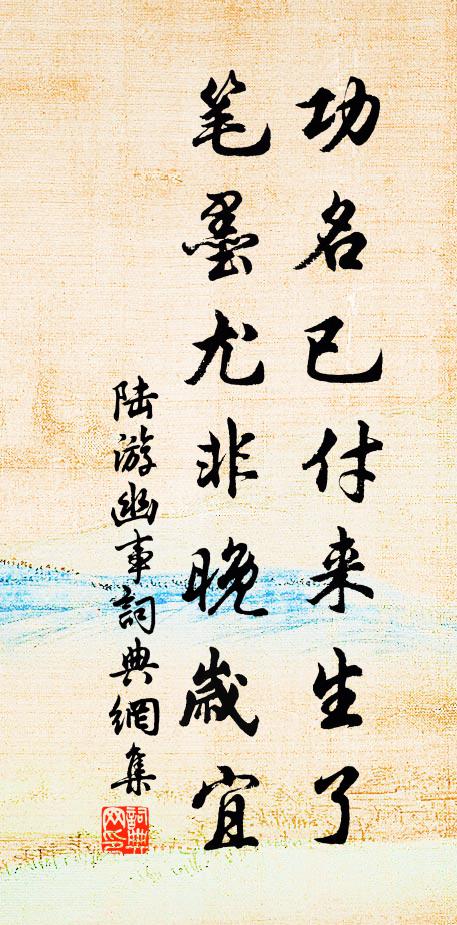 功名已付来生了
笔墨尤非晚歳宜
陆游幽事詞典網集
詞典網印